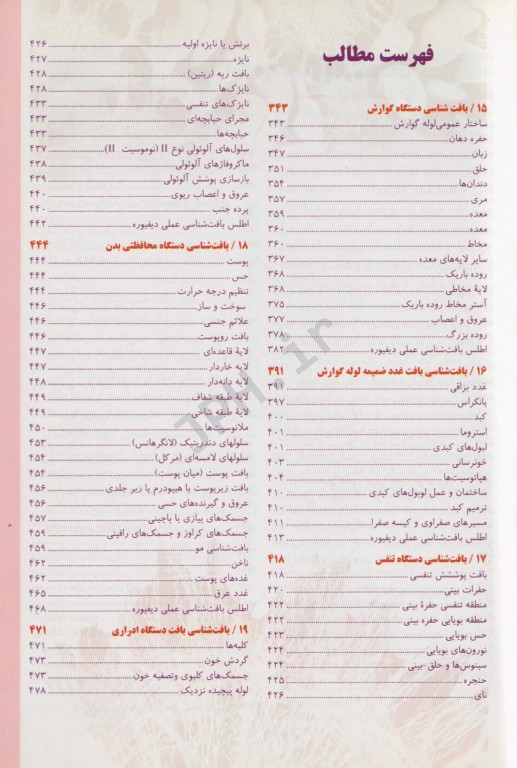 فهرست مطالب
۱۵ / بافت شناسی دستگاه گوارش ۳۴۳
ساختار عمومی‌لوله گوارش ۳۴۳
حفره دهان ۳۴۶
زبان ۳۴۷
حلق ۳۵۱
دندان‌ها ۳۵۴
مری ۳۵۷
معده ۳۵۹
معده ۳۶۰
مخاط ۳۶۰
سایر لایه‌های معده ۳۶۷
روده باریک ۳۶۸
لایهٔ مخاطی ۳۶۸
آستر مخاط روده باریک ۳۷۵
عروق و اعصاب ۳۷۷
روده بزرگ ۳۷۸
اطلس بافت‌شناسی عملی دیفیوره ۳۸۲
۱۶ / بافت‌شناسی بافت غدد ضمیمه لوله گوارش ۳۹۱
غدد بزاقی ۳۹۱
پانکراس ۳۹۷
کبد ۴۰۰
استروما ۴۰۱
لبول‌های کبدی ۴۰۱
خونرسانی ۴۰۳
هپاتوسیت‌ها ۴۰۴
ساختمان و عمل لوبول‌های کبدی ۴۱۰
ترمیم کبد ۴۱۰
مسیرهای صفراوی و کیسه صفرا ۴۱۱
اطلس بافت‌شناسی عملی دیفیوره ۴۱۳
۱۷ / بافت‌شناسی دستگاه تنفس ۴۱۸
بافت پوششش تنفسی ۴۱۸
حفرات بینی ۴۲۰
منطقه تنفسی حفرهٔ بینی ۴۲۲
منطقه بویایی حفره بینی ۴۲۲
حس بویایی ۴۲۳
نورون‌های بویایی ۴۲۴
سینوس‌ها و حلق -بینی ۴۲۴
حنجره ۴۲۵
نای ۴۲۶
برنش یا نایژه اولیه ۴۲۶
نایژه ۴۲۷
بافت ریه (ریتین) ۴۲۸
نایژک‌ها ۴۲۸
نایژک‌های تنفسی ۴۳۳
مجرای حبابچه‌ای ۴۳۳
حبابچه‌ها ۴۳۳
سلول‌های آلوئولی نوع II (نوموسیت II) ۴۳۷
ماکروفاژهای آلوئولی ۴۳۸
بازسازی پوشش آلوئولی ۴۳۹
عروق و اعصاب ریوی ۴۴۰
پرده جنب ۴۴۰
اطلس بافت‌شناسی عملی دیفیوره ۴۴۲
۱۸ / بافت‌شناسی دستگاه محافظتی بدن ۴۴۴
پوست ۴۴۴
حس ۴۴۴
تنظیم درجه حرارت ۴۴۴
سوخت و ساز ۴۴۶
علائم جنسی ۴۴۶
بافت روپوست ۴۴۶
لایهٔ قاعده‌ای ۴۴۷
لایه خاردار ۴۴۷
لایه دانه‌دار ۴۴۸
لایهٔ طبقه شفاف ۴۴۹
لایهٔ طبقه شاخی ۴۴۹
ملانوسیت‌ها ۴۵۰
سلولهای دندریتیک (لانگرهانس) ۴۵۳
سلولهای لامسه‌ای (مرکل) ۴۵۴
بافت پوست (میان پوست) ۴۵۴
بافت زیرپوست یا هیپودرم یا زیر جلدی ۴۵۶
عروق و گیرنده‌های حسی ۴۵۶
جسمک‌های پیازی یا پاچینی ۴۵۷
جسمک‌های کراوز و جسمک‌های رافینی ۴۵۹
بافت‌شناسی مو ۴۵۹
ناخن ۴۶۲
غده‌های پوست ۴۶۲
غدد عرق ۴۶۵
اطلس بافت‌شناسی عملی دیفیوره ۴۶۸
۱۹ / بافت‌شناسی بافت دستگاه ادراری ۴۷۱
کلیه‌ها ۴۷۱
گردش خون ۴۷۳
جسمک‌های کلیوی وتصفیه خون ۴۷۳
لوله پیچیده نزدیک ۴۷۸
JPH.ir